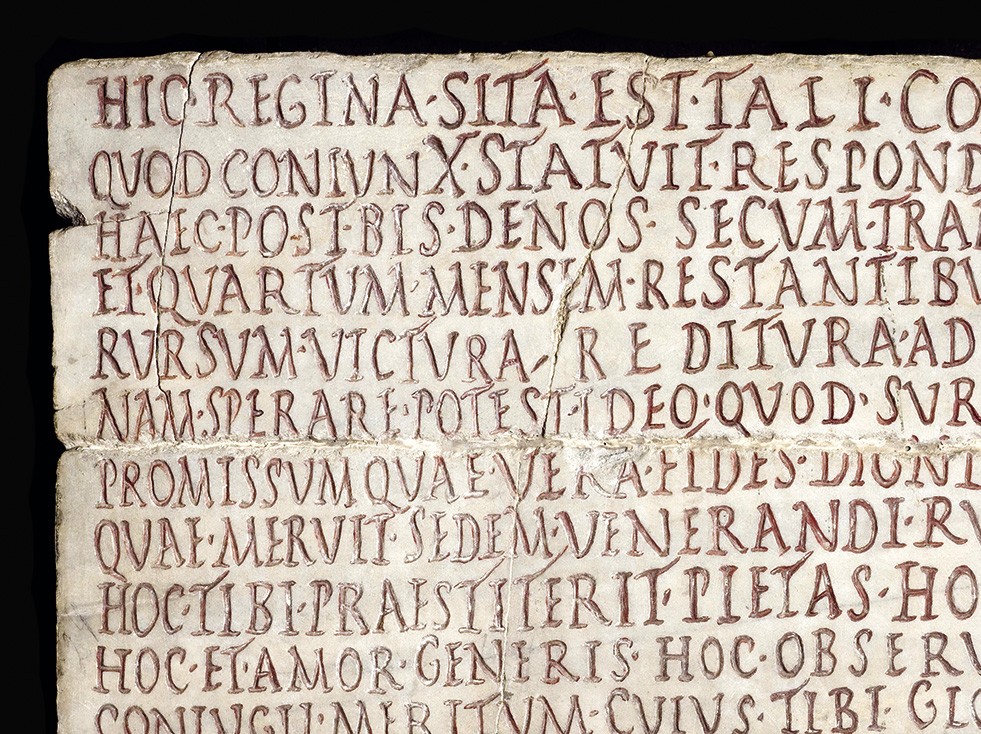 HIC·REGINA·SITA·EST·TALI·CO
QUOD CONIVNX·STATVIT·RESPOND
HAEC·POST·BIS·DENOS·SECVM·TRAN
ET·QVARTVM·MENSEM·RESTANTIBV
RVRSVM·VICTVRA·REDITVRA·AD
NAM·SPERARE·POTEST·IDEO·QVOD·SVR
PROMISSVM QVAE·VERA·FIDES·DIGN
QVAE·MERVIT·SEDEM·VENERANDI·RV
HOC·TIBI·PRAESTITERIT·PIETAS·HO
HOC·ET·AMOR·GENERIS·HOC·OBSERV
CONIVGII·MERITVM·CVIVS·TIBI·GLO